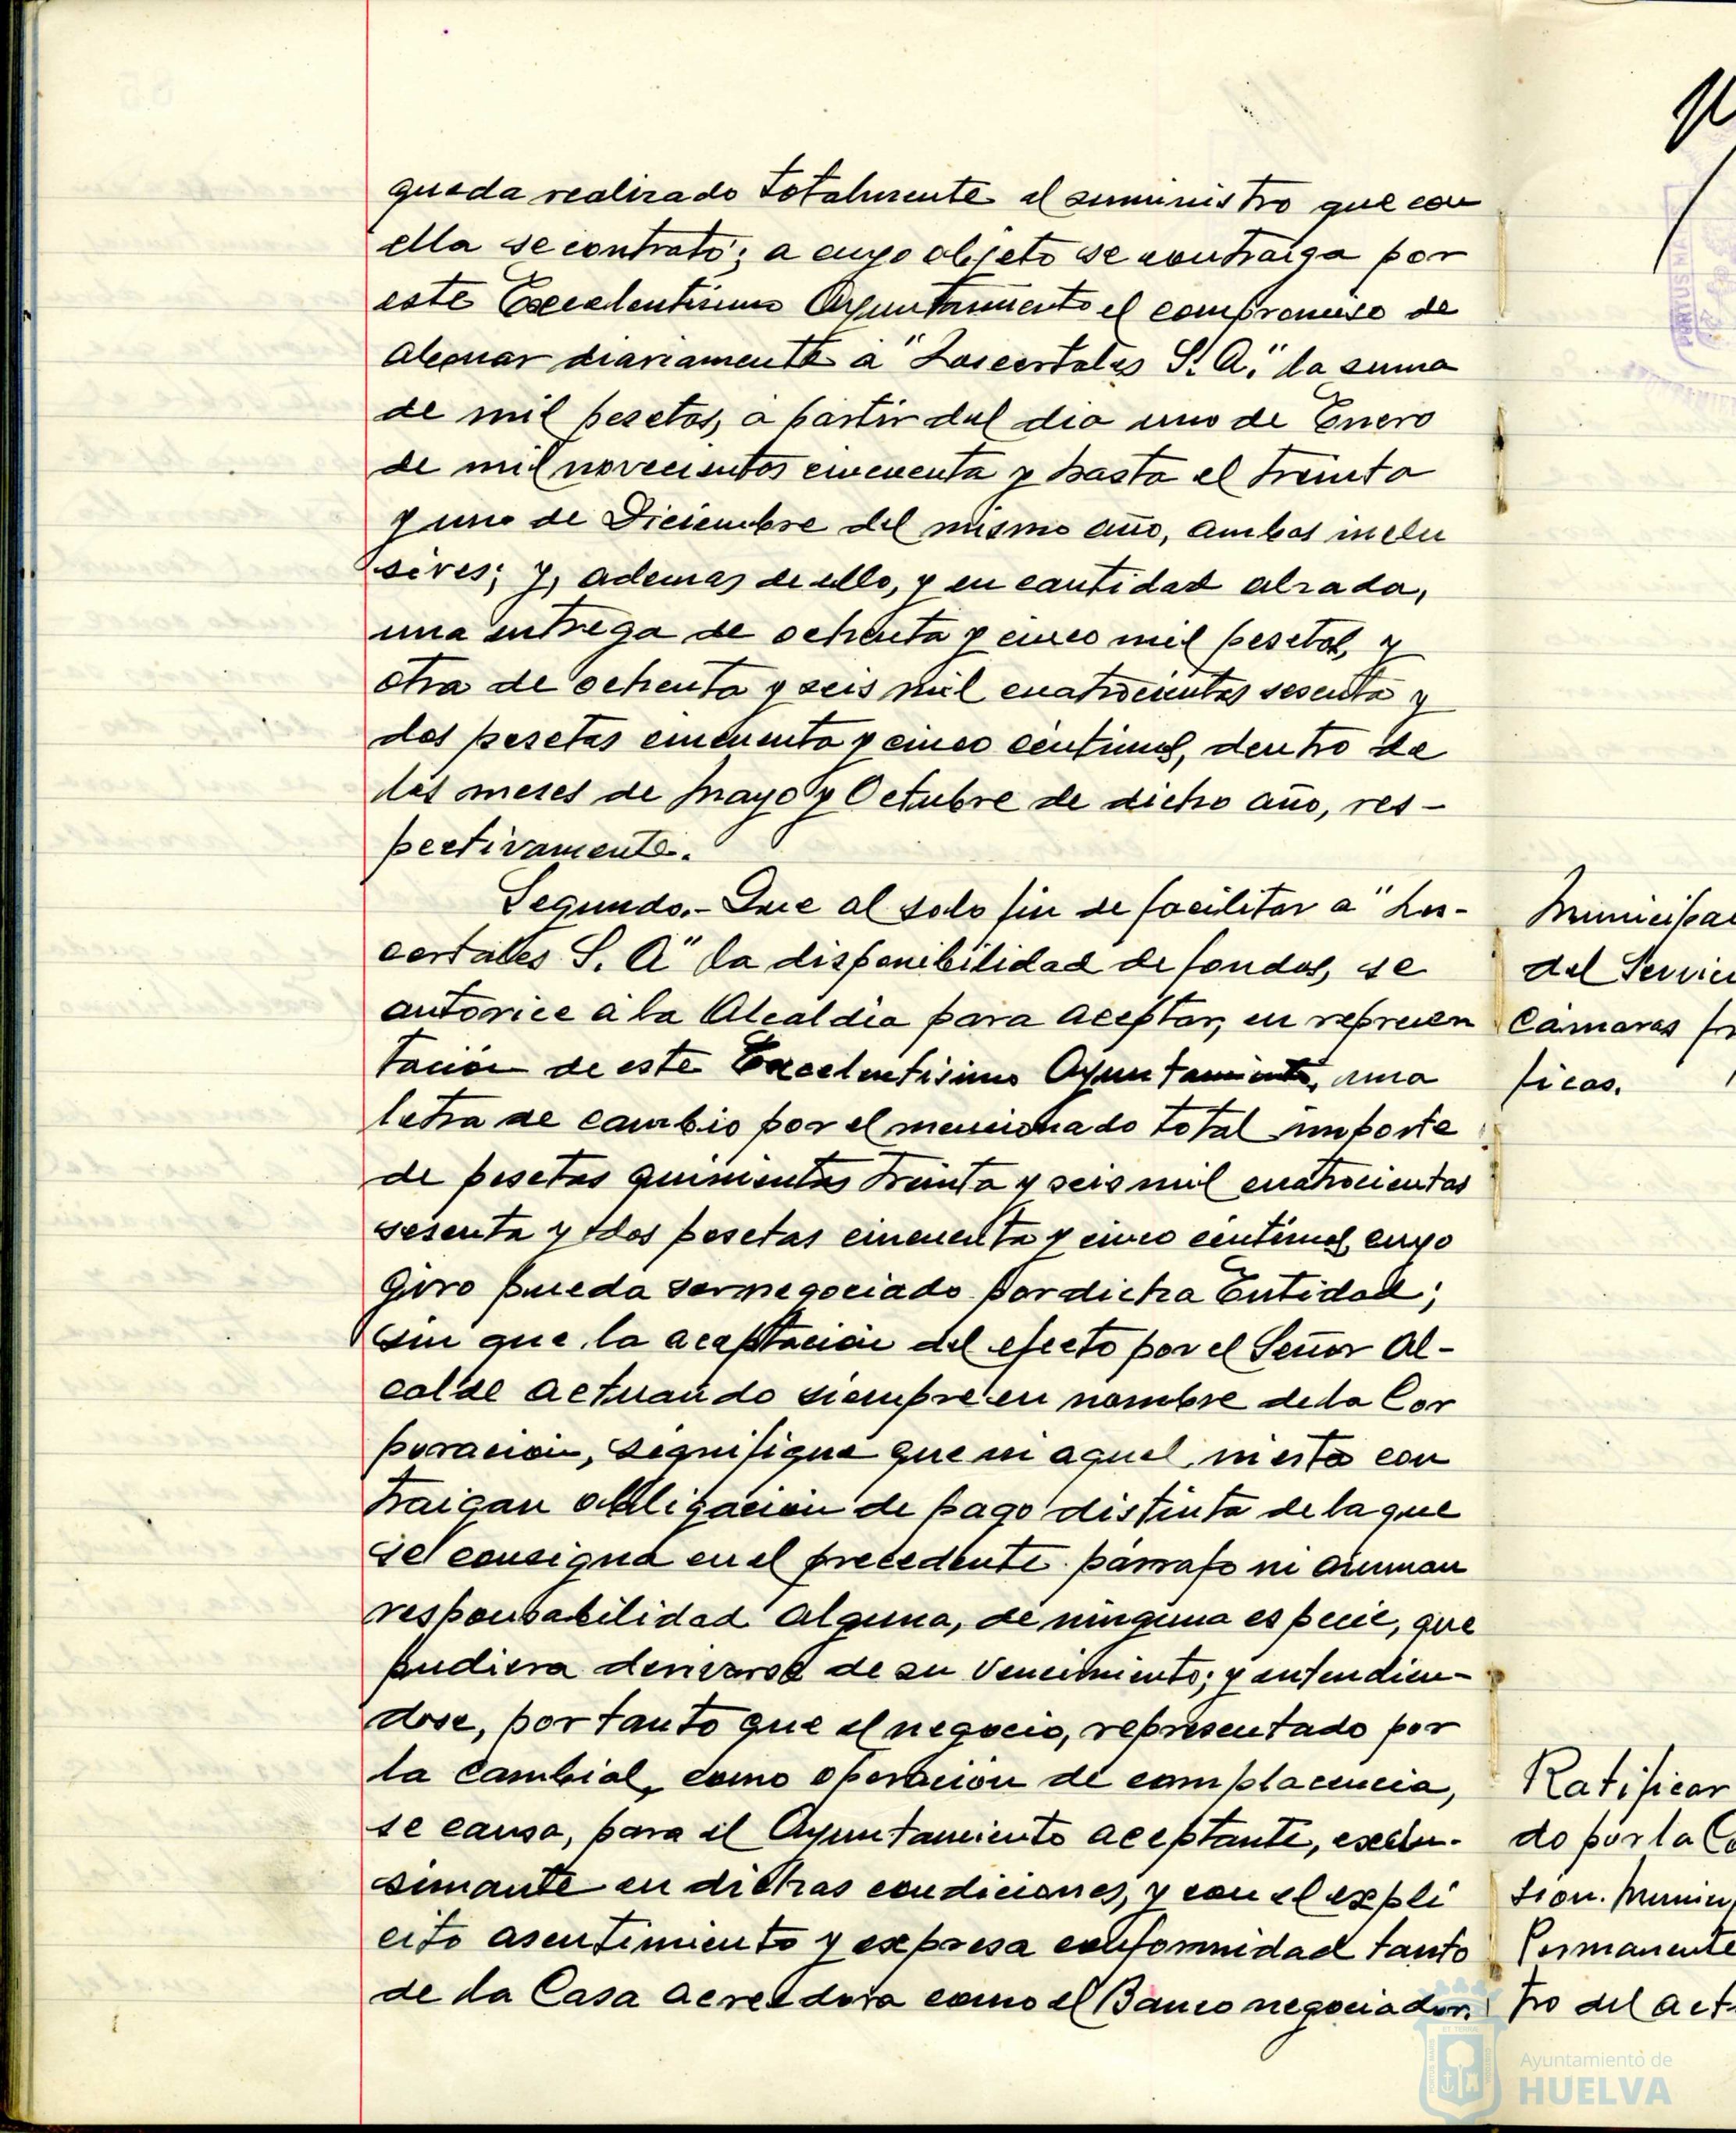 queda realizado totalmente el suministro que con
ella se contrató; a cuyo objeto se contraiga por
este Excelentísimo Ayuntamiento el compromiso de
abonar diariamente a "Loscertales S. A." la suma
de mil pesetas, a partir del dia uno de Enero
de mil novecientos cincuenta y hasta el treinta
y uno de Diciembre del mismo año, ambos inclu
sives; y, ademas de ello, y en cantidad alzada,
una entrega de ochenta y cinco mil pesetas, y
otra de ochenta y seis mil cuatrocientas sesenta y
dos pesetas cincuenta y cinco céntimos, dentro de
los meses de Mayo y Octubre de dicho año, res-
pectivamente.
Segundo.- Que al solo fin de facilitar a "Los-
certales S. A" la disponibilidad de fondos, se
autorice a la Alcaldia para aceptar, en represen
tación de este Excelentisimo Ayuntamiento, una
letra de cambio por el mencionado total importe
de pesetas quinientas treinta y seis mil cuatrocientas
sesenta y dos pesetas cincuenta y cinco centimos, cuyo
giro pueda ser negociado por dicha Entidad;
sin que la aceptación del efecto por el Señor Al-
calde actuando siempre en nombre de la Cor
poracion, signifique que ni aquel, ni esta con
traigan obligación de pago distinta de la que
se consigna en el precedente párrafo ni asuman
responsabilidad alguna, de ninguna especie, que
pudiera derivarse de su vencimiento; y entendien-
dose, por tanto que el negocio, representado por
la cambial, como operación de complacencia,
se causa, para el Ayuntamiento aceptante, exclu-
simante en dichas condiciones, y con el expli
cito asentimiento y expresa conformidad tanto
de la Casa acreedora como el Banco negociador.
Municipal
del Servici
Cámaras fri
ficas.
Ratificar
do por la Co
sion. Munici
Permanente
tro del act
Ayuntamiento de
HUELVA